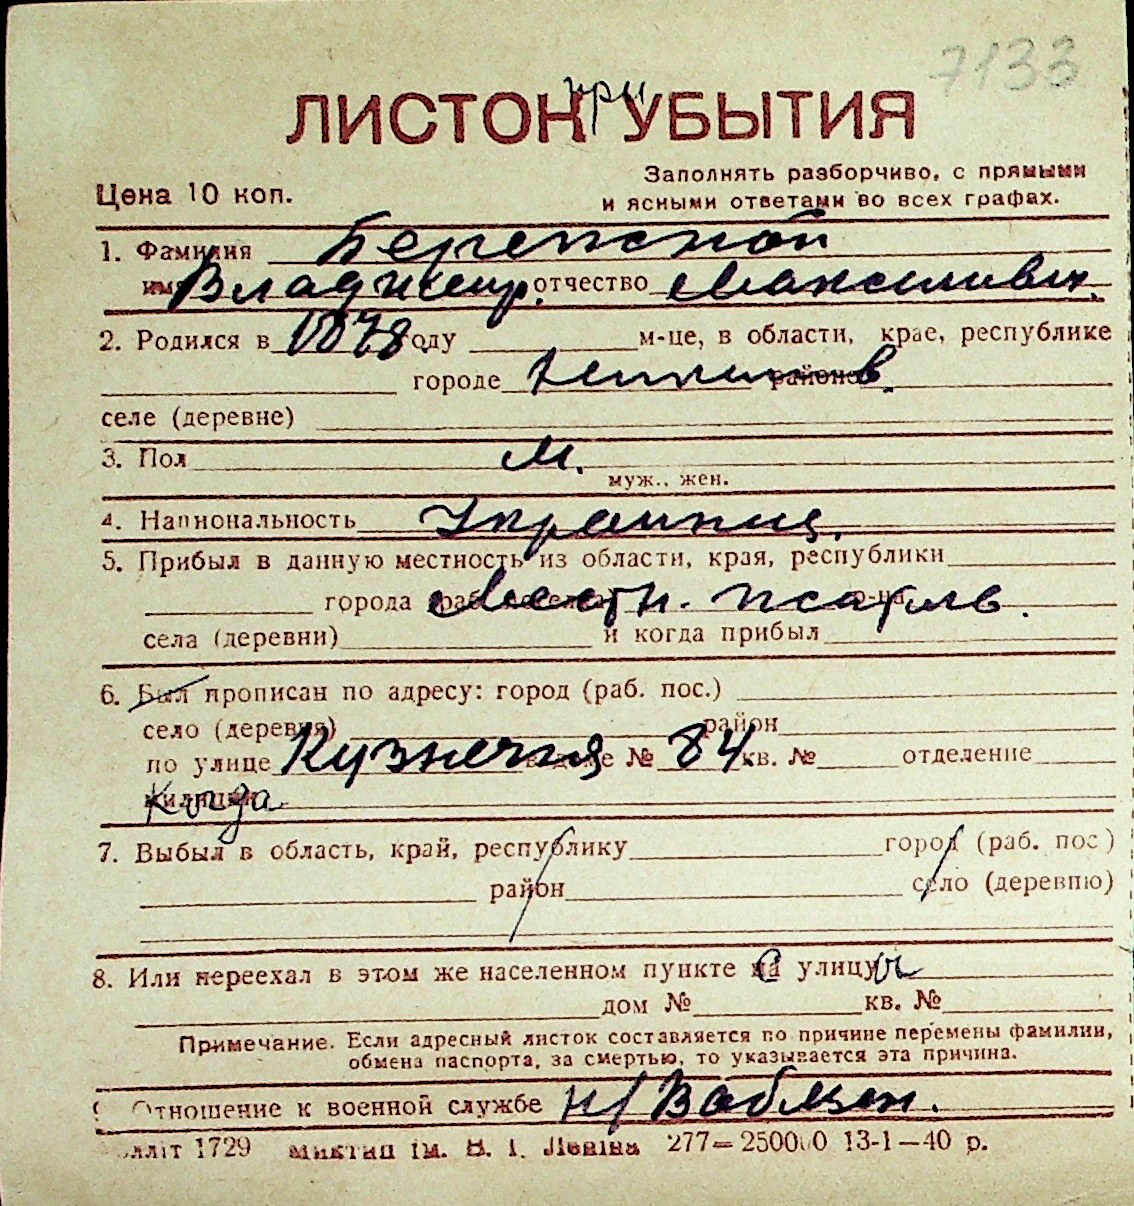 7133
при
ЛИСТОК УБЫТИЯ
Заполнять разборчиво, с прямыми
Цена 10 коп.
и ясными ответами во всех графах.
1. Фамилия Бережной
имя Владимир. отчество Максимович.
2. Родился в 1878 году м-це, в области, крае, республике
городе районе
селе (деревне)
3. Пол М.
муж., жен.
4. Национальность Украинец.
5. Прибыл в данную местность из области, края, республики
города Местн. р-на
села (деревни) и когда прибыл
6. Был прописан по адресу: город (раб. пос.)
село (деревня) район
по улице Кузнечная доме № 84 кв. № отделение
милиции Когда
7. Выбыл в область, край, республику город (раб. пос.)
район село (деревню)
8. Или переехал в этом же населенном пункте на с улицу ы
дом № кв. №
Примечание. Если адресный листок составляется по причине перемены фамилии,
обмена паспорта, за смертью, то указывается эта причина.
Отношение к военной службе н/
лліт 1729 ім. В. І. Леніна 277—250000 13-1—40 р.